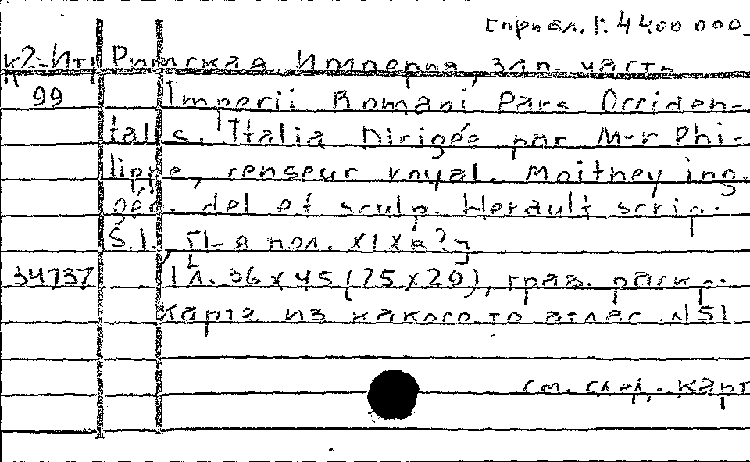 [прибл. 1:4 400 000]
К2-Ит Римская Империя, зап. часть
99 Imperii Romani Pars Occiden-
talis. Italia Dirigée par M-r Phi-
lippe, censeur royal. Moithey ing.
géo. del et sculp. Herault scrip.
S.l., [1-я пол. XIX в?]
34737 1 л. 36x45 (25x29), грав. раск.
Карта из какого-то атлас. №51
см. след. карт